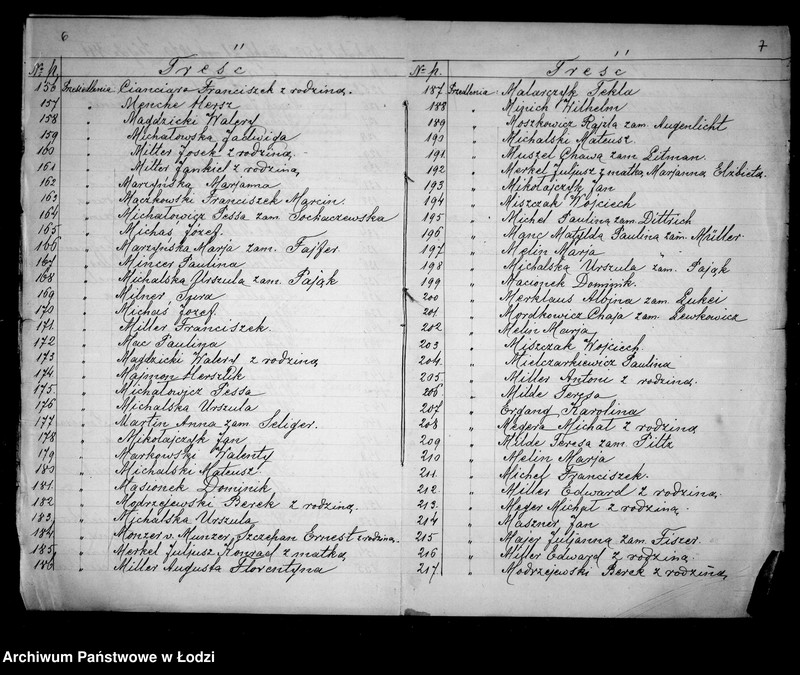 6
Nº p. Treść
156 Przesiedlenia Cianciara Franciszek z rodziną.
157 " Menche Hersz
158 " Magdzicki Walery
159 " Michałowska Jadwiga
160 " Mitter Josek z rodziną.
161 " Mitter Jankiel z rodziną,
162 " Marzyńska Marjanna
163 " Mączkowski Franciszek Marcin.
164 " Michałowicz Tessa zam. Sochaczewska
165 " Michaś Józef.
166 " Marzyńska Marja zam. Fajfer
167 " Mincer Paulina
168 " Michalska Urszula zam. Pająk
169 " Milner Sura
170 " Michaś Józef.
171 " Miller Franciszek.
172 " Mac Paulina
173 " Magdzicki Walery z rodziną
174 " Majmon Herszlik
175 " Michałowicz Tessa
176 " Michalska Urszula
177 " Martin Anna zam. Seliger.
178 " Mikołajczyk Jan
179 " Markowski Walenty
180 " Michalski Mateusz
181 " Masionek Dominik
182 " Modrzejewski Berek z rodziną.
183 " Michalska Urszula
184 " Menzer v. Munzer Szczepan Ernest z rodziną.
185 " Merkel Juljusz Konrad z matką
186 " Miller Augusta Florentyna
7
Nº p. Treść
187 Przesiedlenia Malarczyk Tekla
188 " Minich Wilhelm
189 " Moszkowicz Rajzla zam. Augenlicht
190 " Michalski Mateusz
191 " Muszel Chawa zam. Litman.
192 " Merkel Juljusz z matką Marjanną Elżbietą.
193 " Mikołajczyk Jan
194 " Miszczak Wojciech
195 " Michel Paulina zam. Dittrich
196 " Manc Matylda Paulina zam. Müller
197 " Melin Marja "
198 " Michalska Urszula zam. Pająk
199 " Macionek Dominik.
200 " Merklaus Albina zam. Lukei
201 " Mordkowicz Chaja zam. Lewkowicz
202 " Melin Marja
203 " Miszczak Wojciech
204 " Mielczarkiewicz Paulina
205 " Miller Antoni z rodziną.
206 " Milde Teresa
207 " Organd Karolina
208 " Megera Michał z rodziną
209 " Milde Teresa zam. Tiltz
210 " Melin Marja
211 " Michel Franciszek.
212 " Miller Edward z rodziną.
213 " Meger Michał z rodziną.
214 " Maszner Jan
215 " Majer Juljanna zam. Fiszer
216 " Miller Edward z rodziną.
217 " Modrzejewski Berek z rodziną,
Archiwum Państwowe w Łodzi